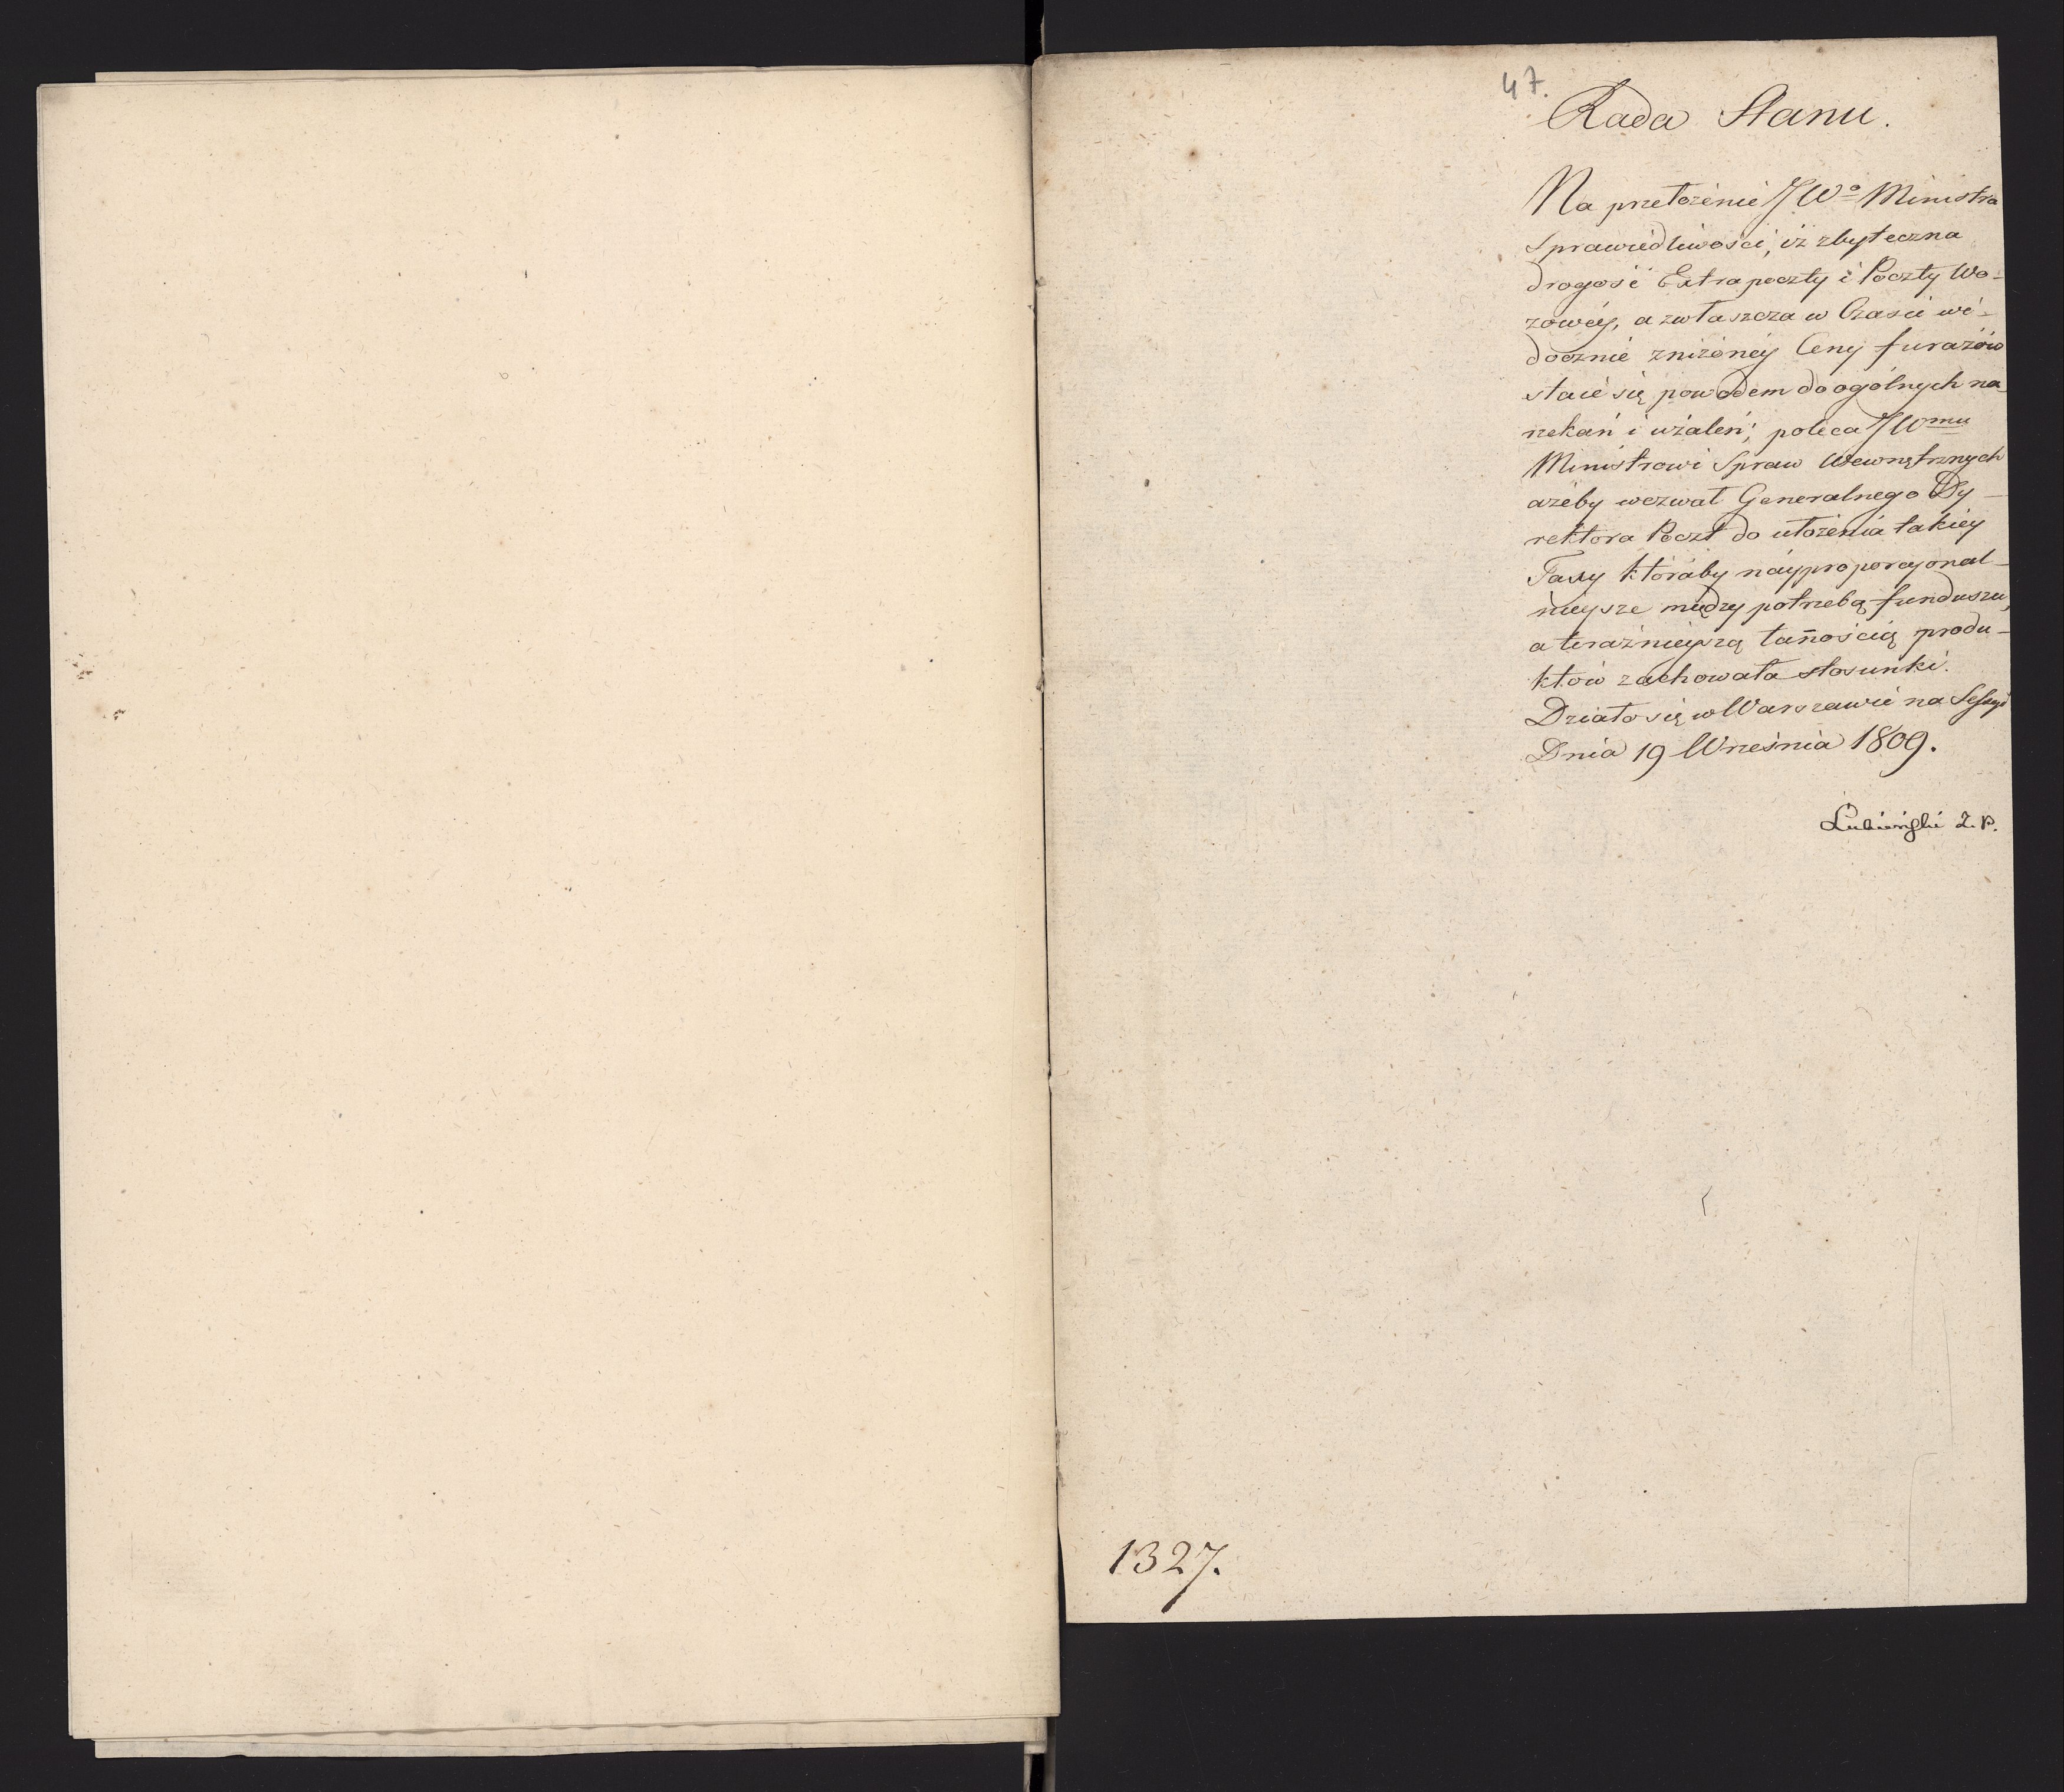 47.
Rada Stanu.
Na przełożenie JWo Ministra
Sprawiedliwości, iż zbyteczna
drogość Extrapoczty i Poczty Wo-
zowéy, a zwłaszcza w Czasie wi-
docznie zniżonéy Ceny furażów
staie się powodem do ogólnych na-
rzekań i użaleń; poleca JWmu
Ministrowi Spraw Wewnętrznych
ażeby wezwał Generalnego Dy-
rektora Poczt do ułożenia takiey
Taxy któraby náyproporcyonal-
nieysze między potrzebą funduszu,
a teraźnieyszą tańością produ-
któw zachowała stosunki.
Działo się w Warszawie na Sessyi
Dnia 19 Września 1809.
Łubieński Z. P.
1327.